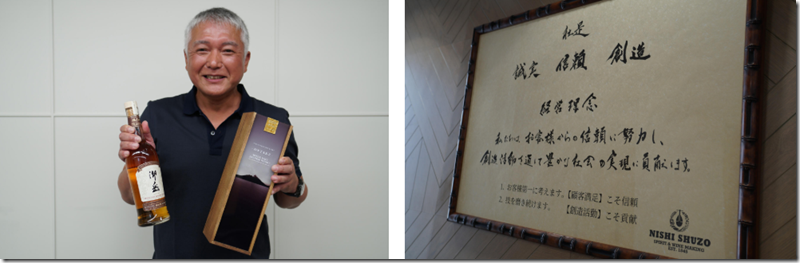 御岳
社是
誠実 信頼 創造
経営理念
私たちは お客様からの信頼に努力し、
創造活動を通じて豊かな社会の実現に貢献します。
1. お客様第一に考えます。【顧客満足】こそ信頼
2. 技を磨き続けます。【創造活動】こそ貢献
NISHI SHUZO
SPIRIT & WINE MAKING
EST. 1845